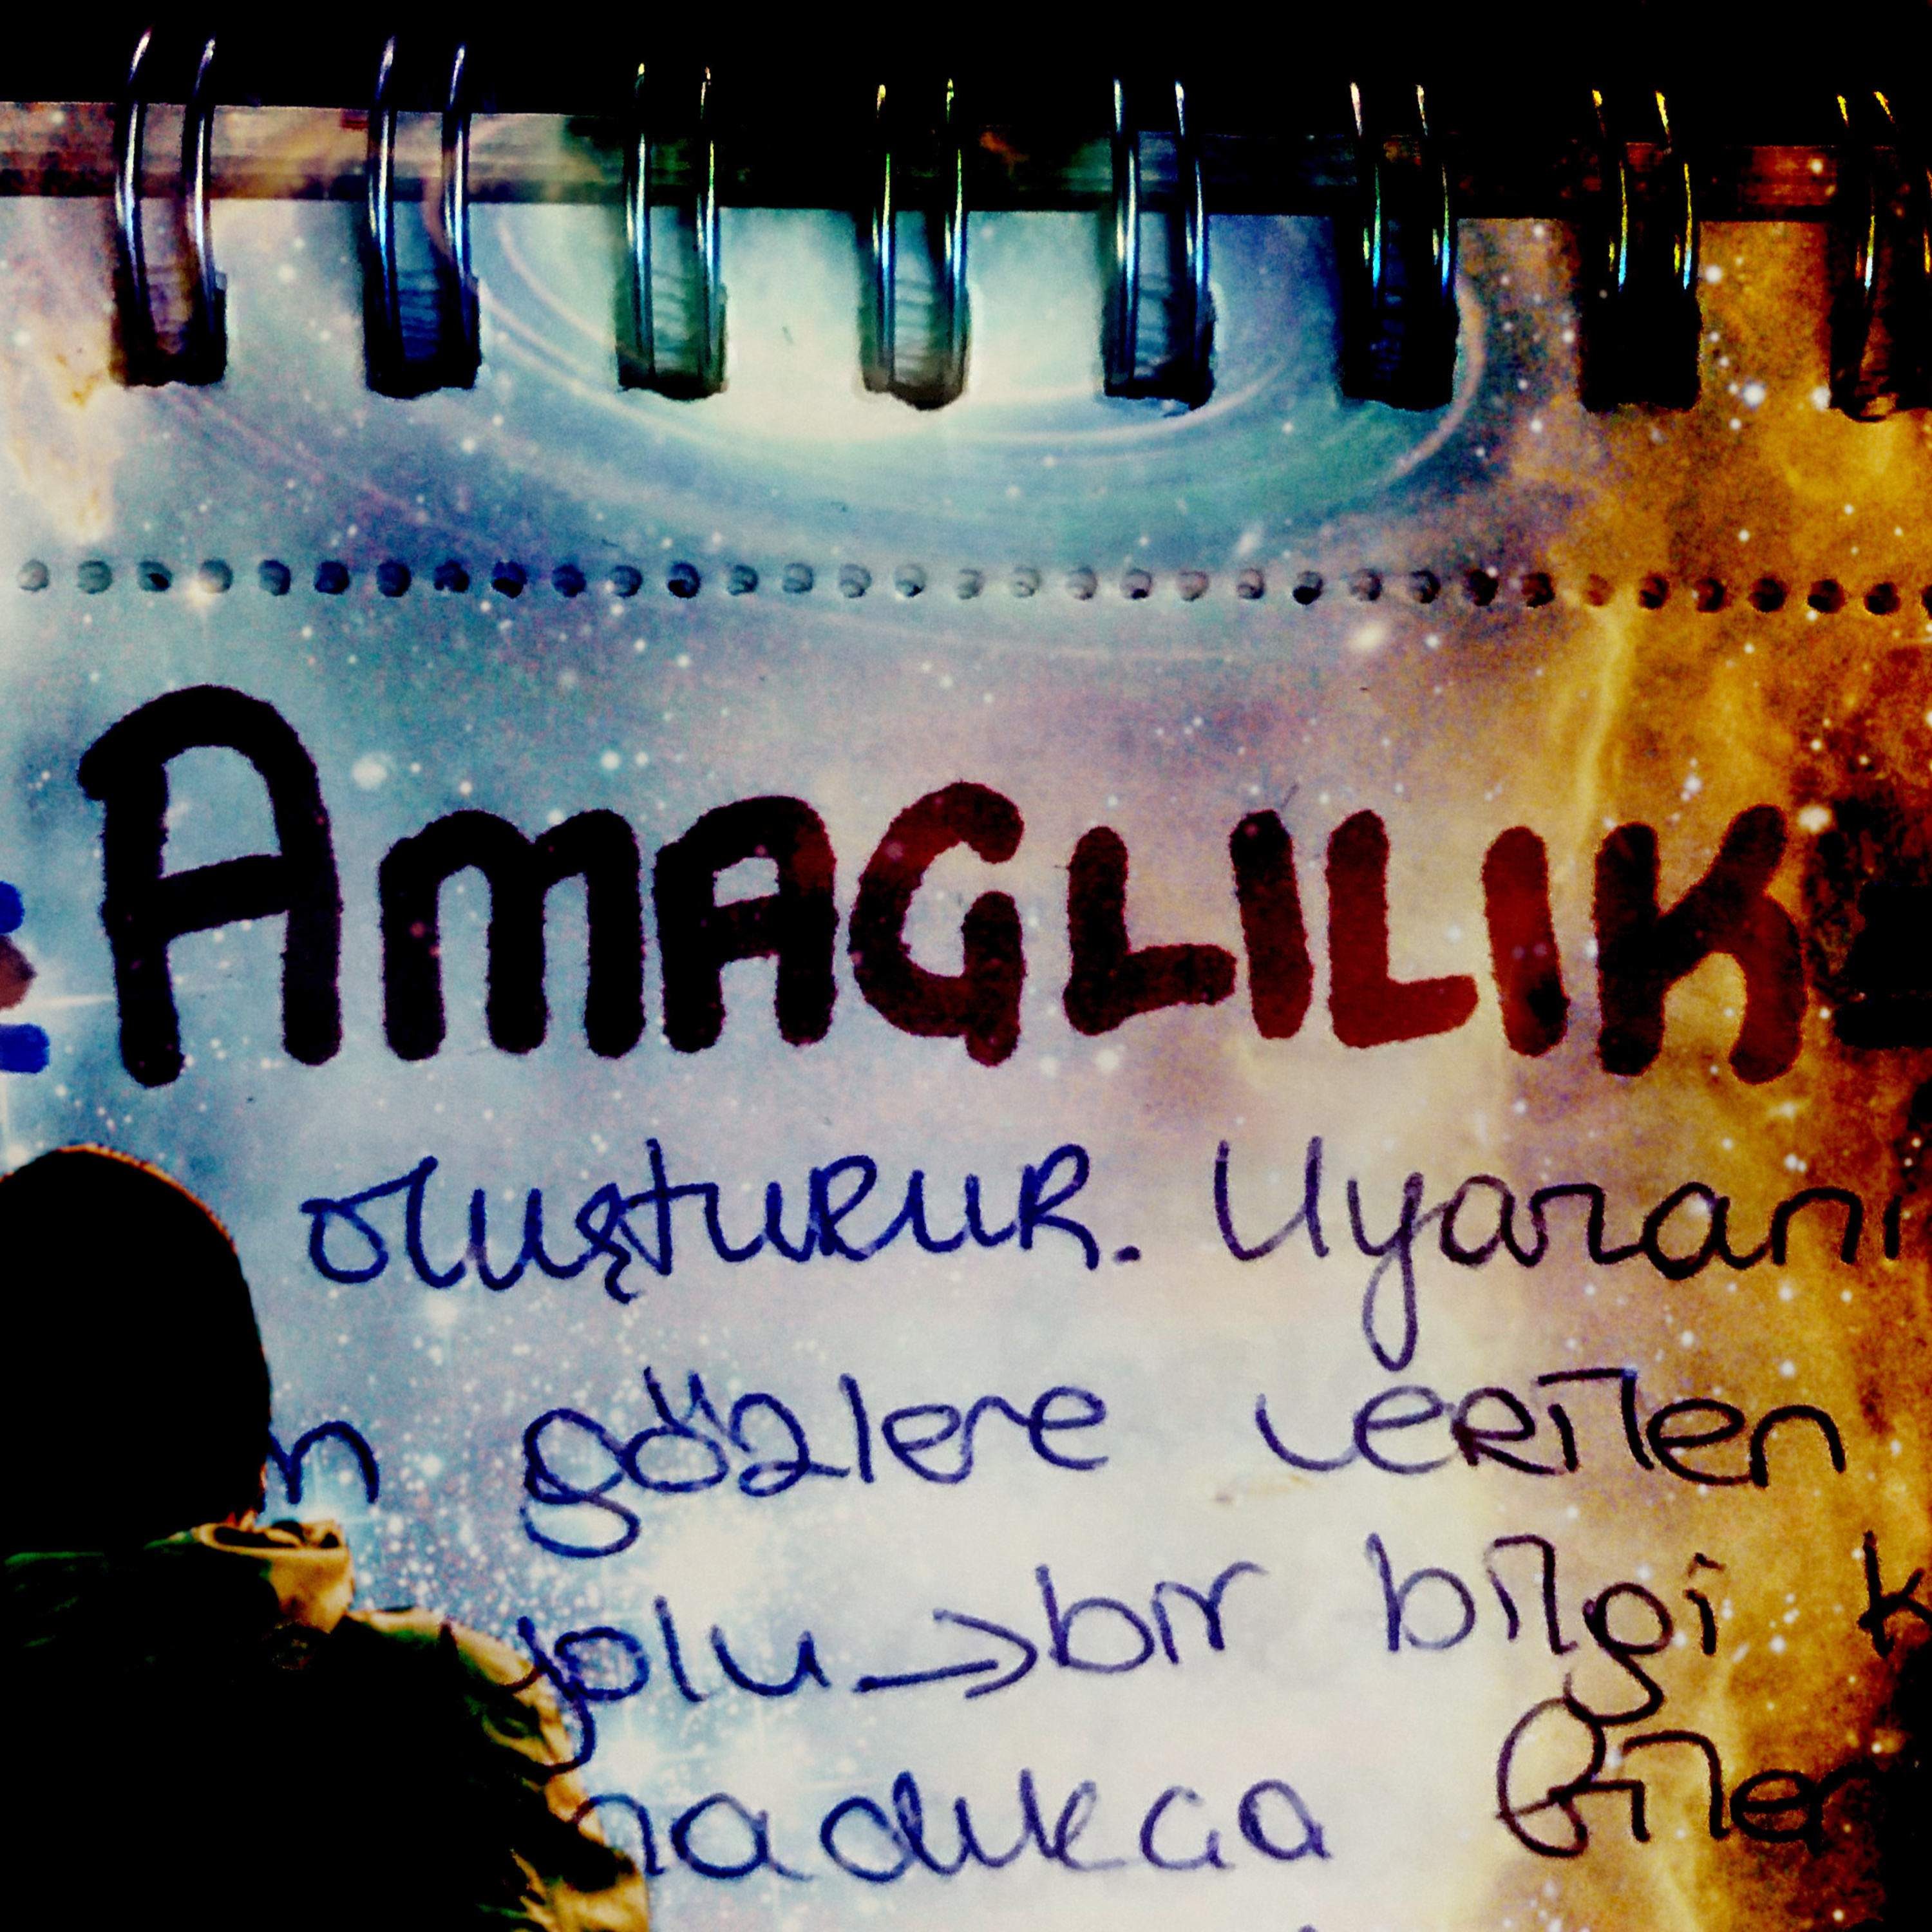 AMAGLILIK
oluşturur. Uyaranı
gözlere verilen
yolu → bir bilgi